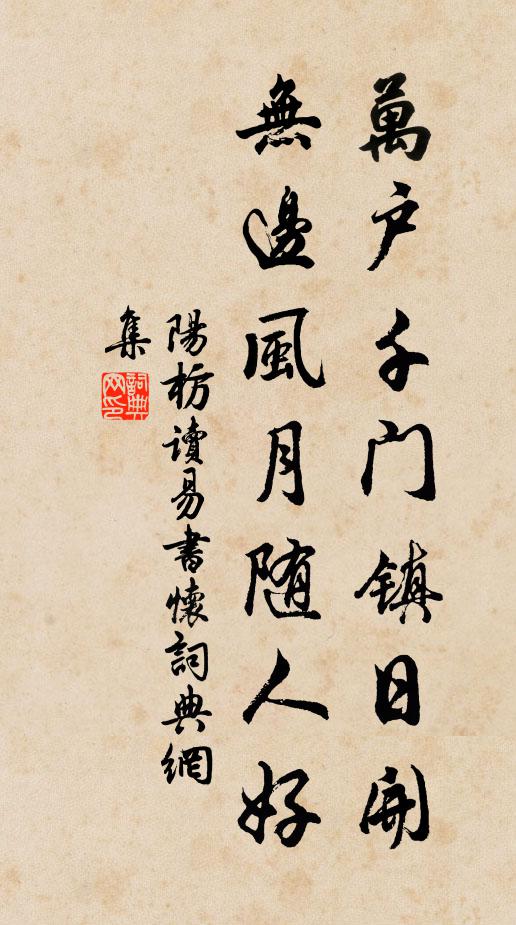 萬户千门镇日開
無邊風月随人好
陽枋讀易書懷詞典網
集
詞典
网印